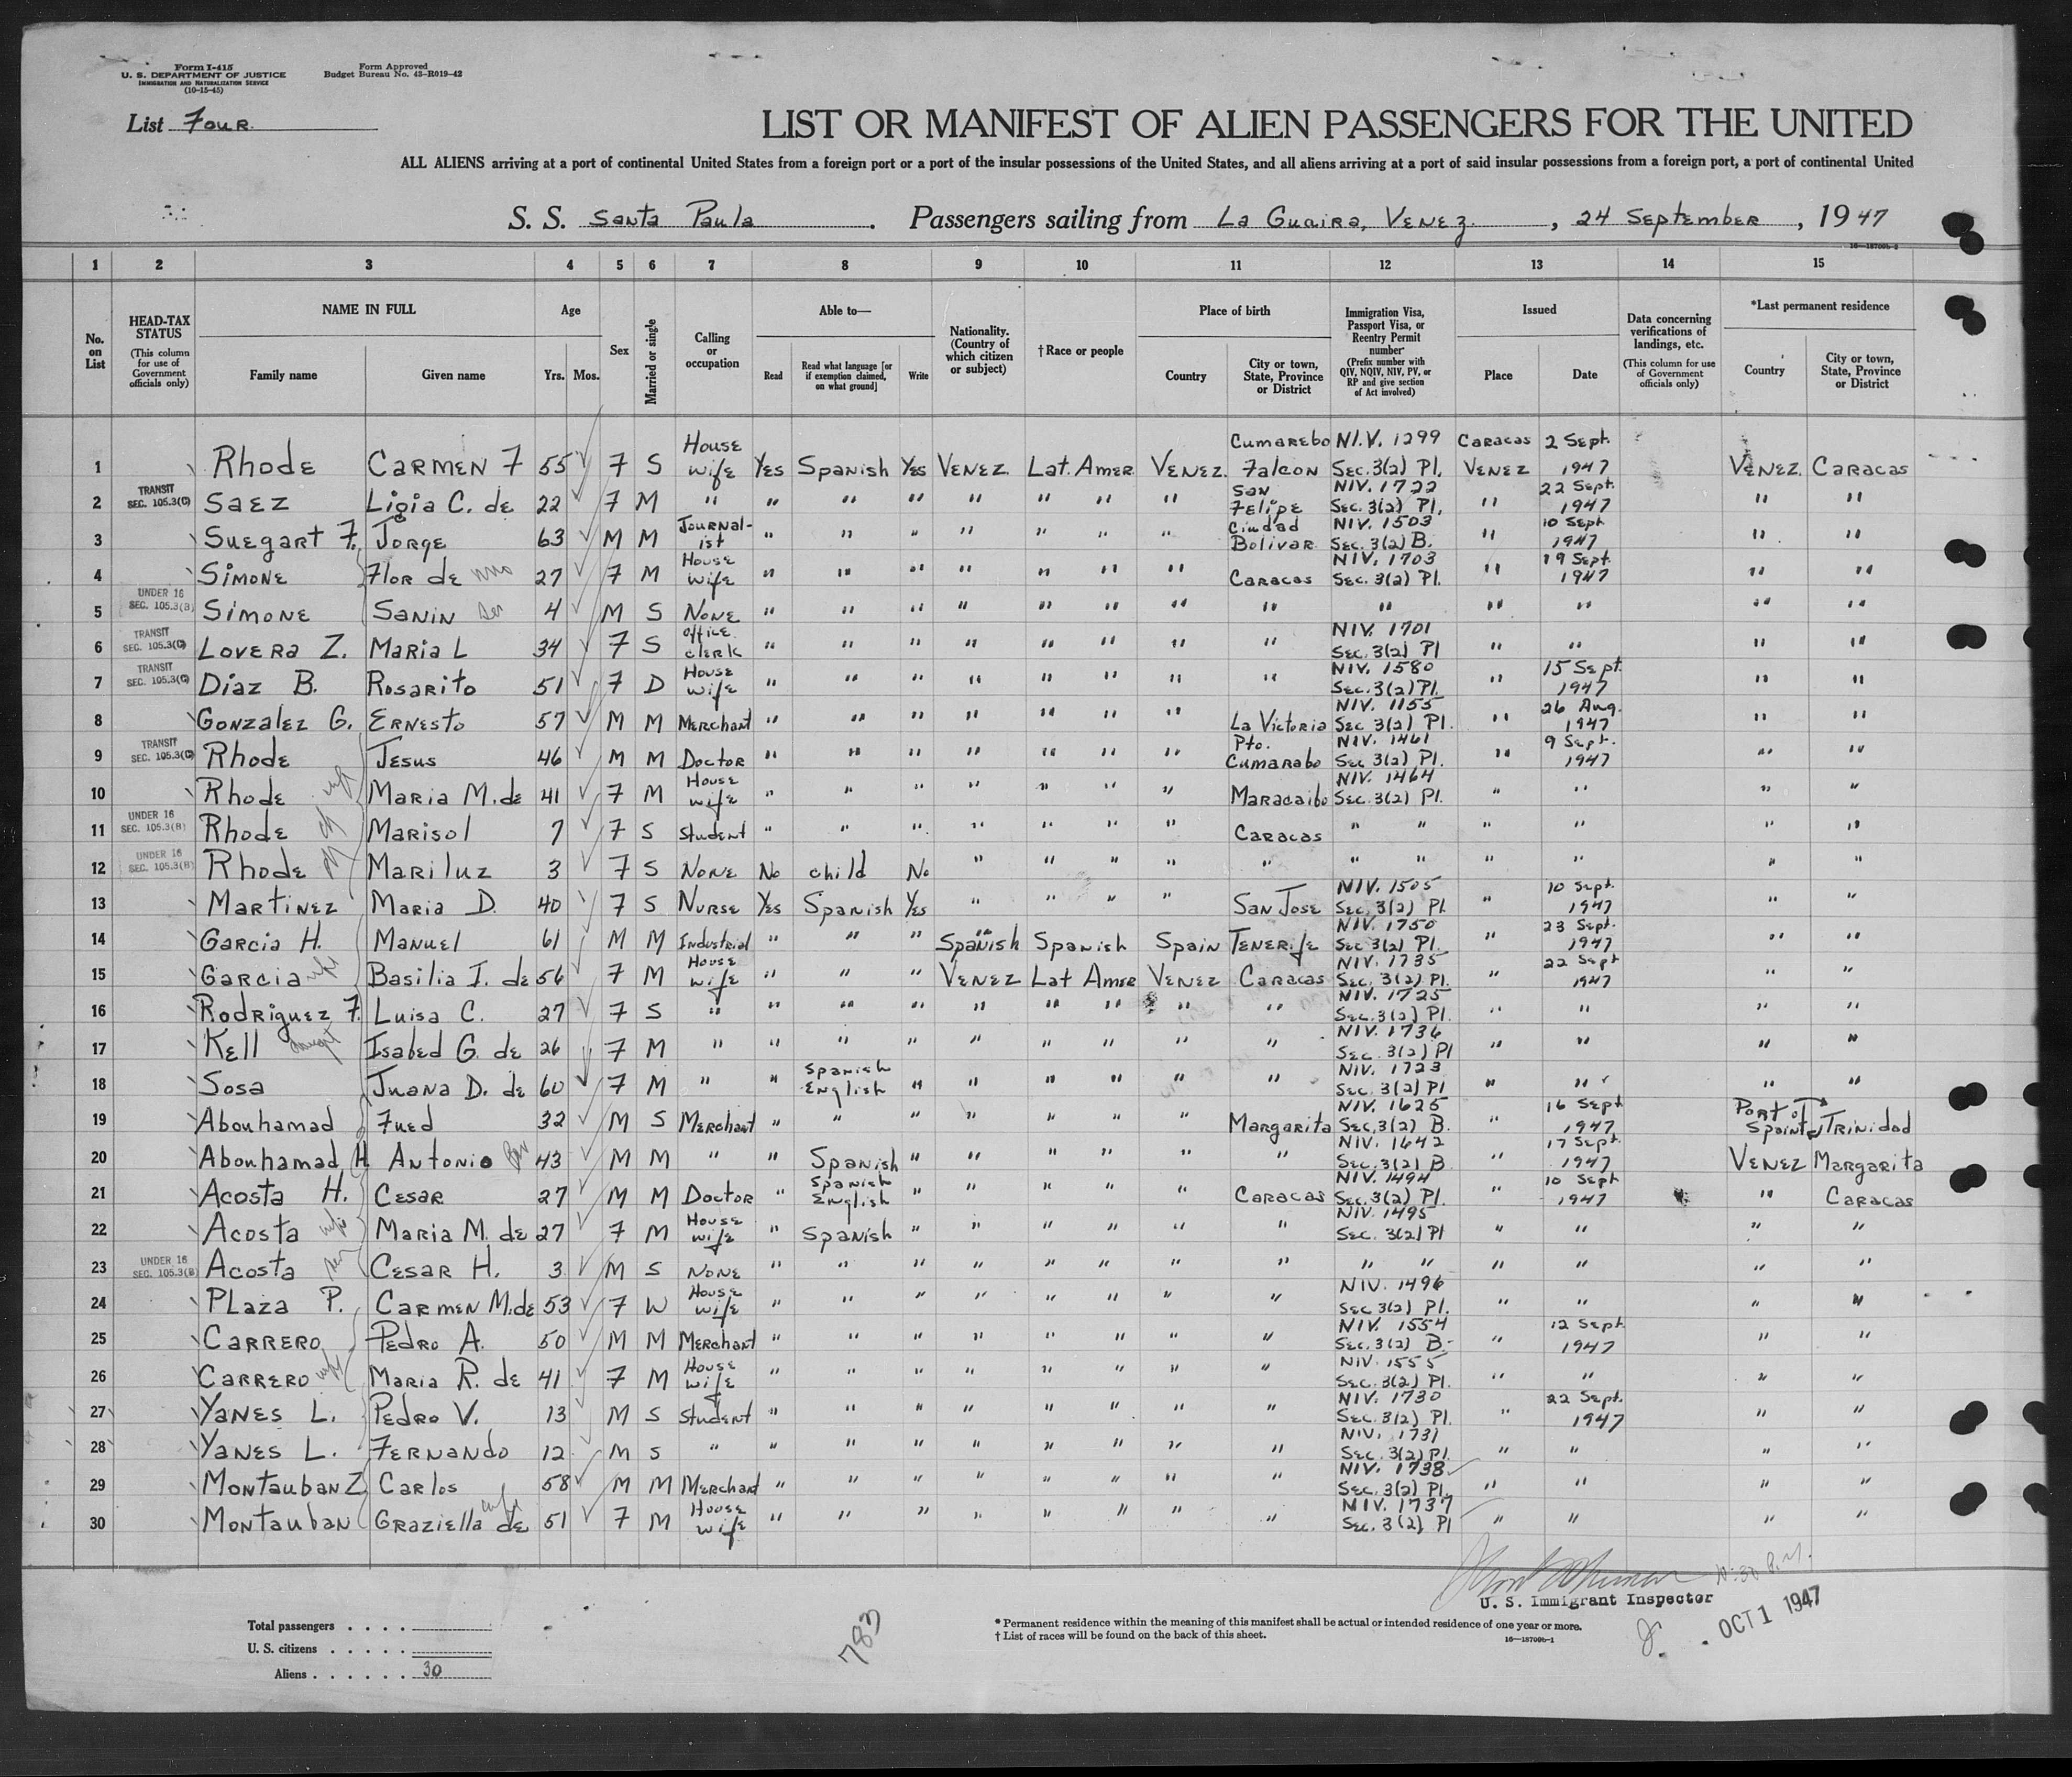 Form I-415
U. S. DEPARTMENT OF JUSTICE
IMMIGRATION AND NATURALIZATION SERVICE
(10-15-45)
Form Approved
Budget Bureau No. 43-R019-42
List Four.
LIST OR MANIFEST OF ALIEN PASSENGERS FOR THE UNITED
ALL ALIENS arriving at a port of continental United States from a foreign port or a port of the insular possessions of the United States, and all aliens arriving at a port of said insular possessions from a foreign port, a port of continental United
S. S. Santa Paula. Passengers sailing from La Guaira, Venez., 24 September, 1947
1 2 3 4 5 6 7 8 9 10 11 12 13 14 15
No. on List
HEAD-TAX STATUS (This column for use of Government officials only)
NAME IN FULL Family name Given name
Age Yrs. Mos.
Sex
Married or single
Calling or occupation
Able to— Read Read what language [or if exemption claimed, on what ground] Write
Nationality. (Country of which citizen or subject)
†Race or people
Place of birth Country City or town, State, Province or District
Immigration Visa, Passport Visa, or Reentry Permit number (Prefix number with QIV, NQIV, NIV, PV, or RP and give section of Act involved)
Issued Place Date
Data concerning verifications of landings, etc. (This column for use of Government officials only)
*Last permanent residence Country City or town, State, Province or District
1 Rhode Carmen F 55 F S House wife Yes Spanish Yes Venez. Lat. Amer Venez. Cumarebo Falcon N.I.V. 1299 Sec. 3(2) Pl. Caracas Venez 2 Sept. 1947 Venez. Caracas
2 TRANSIT SEC. 105.3(C) Saez Ligia C. de 22 F M " " " " " " " " San Felipe NIV. 1722 Sec. 3(2) Pl. " 22 Sept. 1947 " "
3 Suegart F. Jorge 63 M M Journal-ist " " " " " " " Ciudad Bolivar NIV. 1503 Sec. 3(2) B. " 10 Sept 1947 " "
4 Simone Flor de 27 F M House wife " " " " " " " Caracas NIV. 1703 Sec. 3(2) Pl. " 19 Sept. 1947 " "
5 UNDER 16 SEC. 105.3(B) Simone Sanin 4 M S None " " " " " " " " " " " " "
6 TRANSIT SEC. 105.3(C) Lovera Z. Maria L 34 F S Office clerk " " " " " " " " NIV. 1701 Sec. 3(2) Pl " " " "
7 TRANSIT SEC. 105.3(C) Diaz B. Rosarito 51 F D House wife " " " " " " " " NIV. 1580 Sec. 3(2) Pl. " 15 Sept. 1947 " "
8 Gonzalez G. Ernesto 57 M M Merchant " " " " " " " La Victoria NIV. 1155 Sec 3(2) Pl. " 26 Aug. 1947 " "
9 TRANSIT SEC. 105.3(C) Rhode Jesus 46 M M Doctor " " " " " " " Pto. Cumarabo NIV. 1461 Sec 3(2) Pl. " 9 Sept. 1947 " "
10 Rhode wife Maria M. de 41 F M House wife " " " " " " " Maracaibo NIV. 1464 Sec. 3(2) Pl. " " " "
11 UNDER 16 SEC. 105.3(B) Rhode Marisol 7 F S Student " " " " " " " Caracas " " " " " "
12 UNDER 16 SEC. 105.3(B) Rhode Mariluz 3 F S None No child No " " " " " " " " " " "
13 Martinez Maria D. 40 F S Nurse Yes Spanish Yes " " " " San Jose NIV. 1505 Sec. 3(2) Pl. " 10 Sept. 1947 " "
14 Garcia H. Manuel 61 M M Industrial " " " Spanish Spanish Spain Tenerife NIV. 1750 Sec 3(2) Pl. " 23 Sept. 1947 " "
15 Garcia wife Basilia I. de 56 F M House wife " " " Venez Lat Amer Venez Caracas NIV. 1735 Sec. 3(2) Pl. " 22 Sept 1947 " "
16 Rodriguez F. Luisa C. 27 F S " " " " " " " " " NIV. 1725 Sec. 3(2) Pl. " " " "
17 Kell Isabel G. de 26 F M " " " " " " " " " NIV. 1736 Sec. 3(2) Pl " " " "
18 Sosa Juana D. de 60 F M " " Spanish English " " " " " " NIV. 1723 Sec. 3(2) Pl " " " "
19 Abouhamad Fued 32 M S Merchant " " " " " " " Margarita NIV. 1625 Sec. 3(2) B. " 16 Sept 1947 Port of Spain Trinidad
20 Abouhamad H Antonio 43 M M " " Spanish " " " " " " NIV. 1642 Sec. 3(2) B " 17 Sept. 1947 Venez Margarita
21 Acosta H. Cesar 27 M M Doctor " Spanish English " " " " " Caracas NIV. 1494 Sec. 3(2) Pl. " 10 Sept 1947 " Caracas
22 Acosta wife Maria M. de 27 F M House wife " Spanish " " " " " " NIV. 1495 Sec. 3(2) Pl " " " "
23 UNDER 16 SEC. 105.3(B) Acosta Cesar H. 3 M S None " " " " " " " " " " " " " "
24 Plaza P. Carmen M. de 53 F W House wife " " " " " " " " NIV. 1496 Sec 3(2) Pl. " " " "
25 Carrero Pedro A. 50 M M Merchant " " " " " " " " NIV. 1554 Sec. 3(2) B. " 12 Sept. 1947 " "
26 Carrero wife Maria R. de 41 F M House wife " " " " " " " " NIV. 1555 Sec. 3(2) Pl. " " " "
27 Yanes L. Pedro V. 13 M S Student " " " " " " " " NIV. 1730 Sec. 3(2) Pl. " 22 Sept. 1947 " "
28 Yanes L. Fernando 12 M S " " " " " " " " " NIV. 1731 Sec. 3(2) Pl. " " " "
29 Montauban Z Carlos 58 M M Merchant " " " " " " " " NIV. 1738 Sec. 3(2) Pl. " " " "
30 Montauban Graziella de 51 F M House wife " " " " " " " " NIV. 1737 Sec. 3(2) Pl " " " "
U. S. Immigrant Inspector
OCT 1 1947
Total passengers
U. S. citizens
Aliens 30
783
* Permanent residence within the meaning of this manifest shall be actual or intended residence of one year or more.
† List of races will be found on the back of this sheet.
16—18709b-1